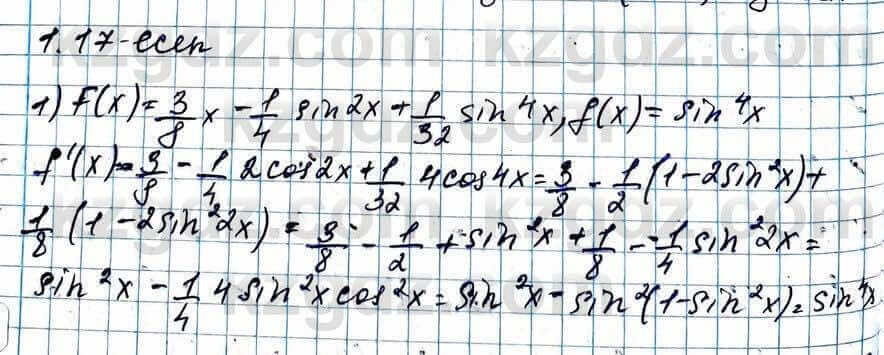 1.17-есеп
1) F(x) = 3/8 x - 1/4 sin 2x + 1/32 sin 4x, f(x) = sin⁴x
F'(x) = 3/8 - 1/4 2cos 2x + 1/32 4cos 4x = 3/8 - 1/2 (1 - 2sin²x) +
1/8 (1 - 2sin²2x) = 3/8 - 1/2 + sin²x + 1/8 - 1/4 sin²2x =
sin²x - 1/4 4sin²x cos²x = sin²x - sin²(1 - sin²x) = sin⁴x